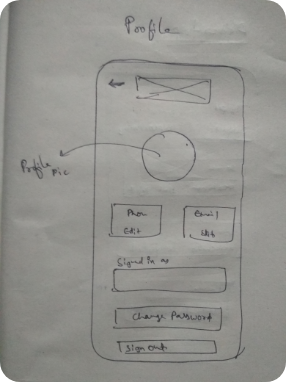 Profile
Profile
Pic
Phone
Edit
Email
Edit
Signed in as
Change Password
Sign out